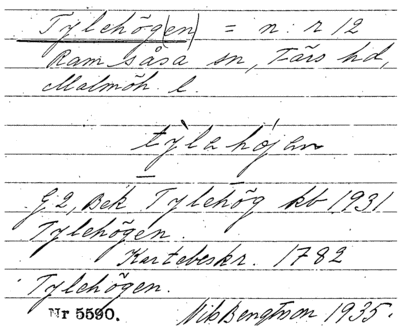 Tylehög(en) = n:r 12
Ramsåsa sn, Färs hd,
Malmöh. l.
tỳlahö́jən
G 2, Bek Tylehög kb 1931
Tylehögen.
Kartebeskr. 1782
Tylehögen.
Nr 5590. Nils Bengtsson 1935.